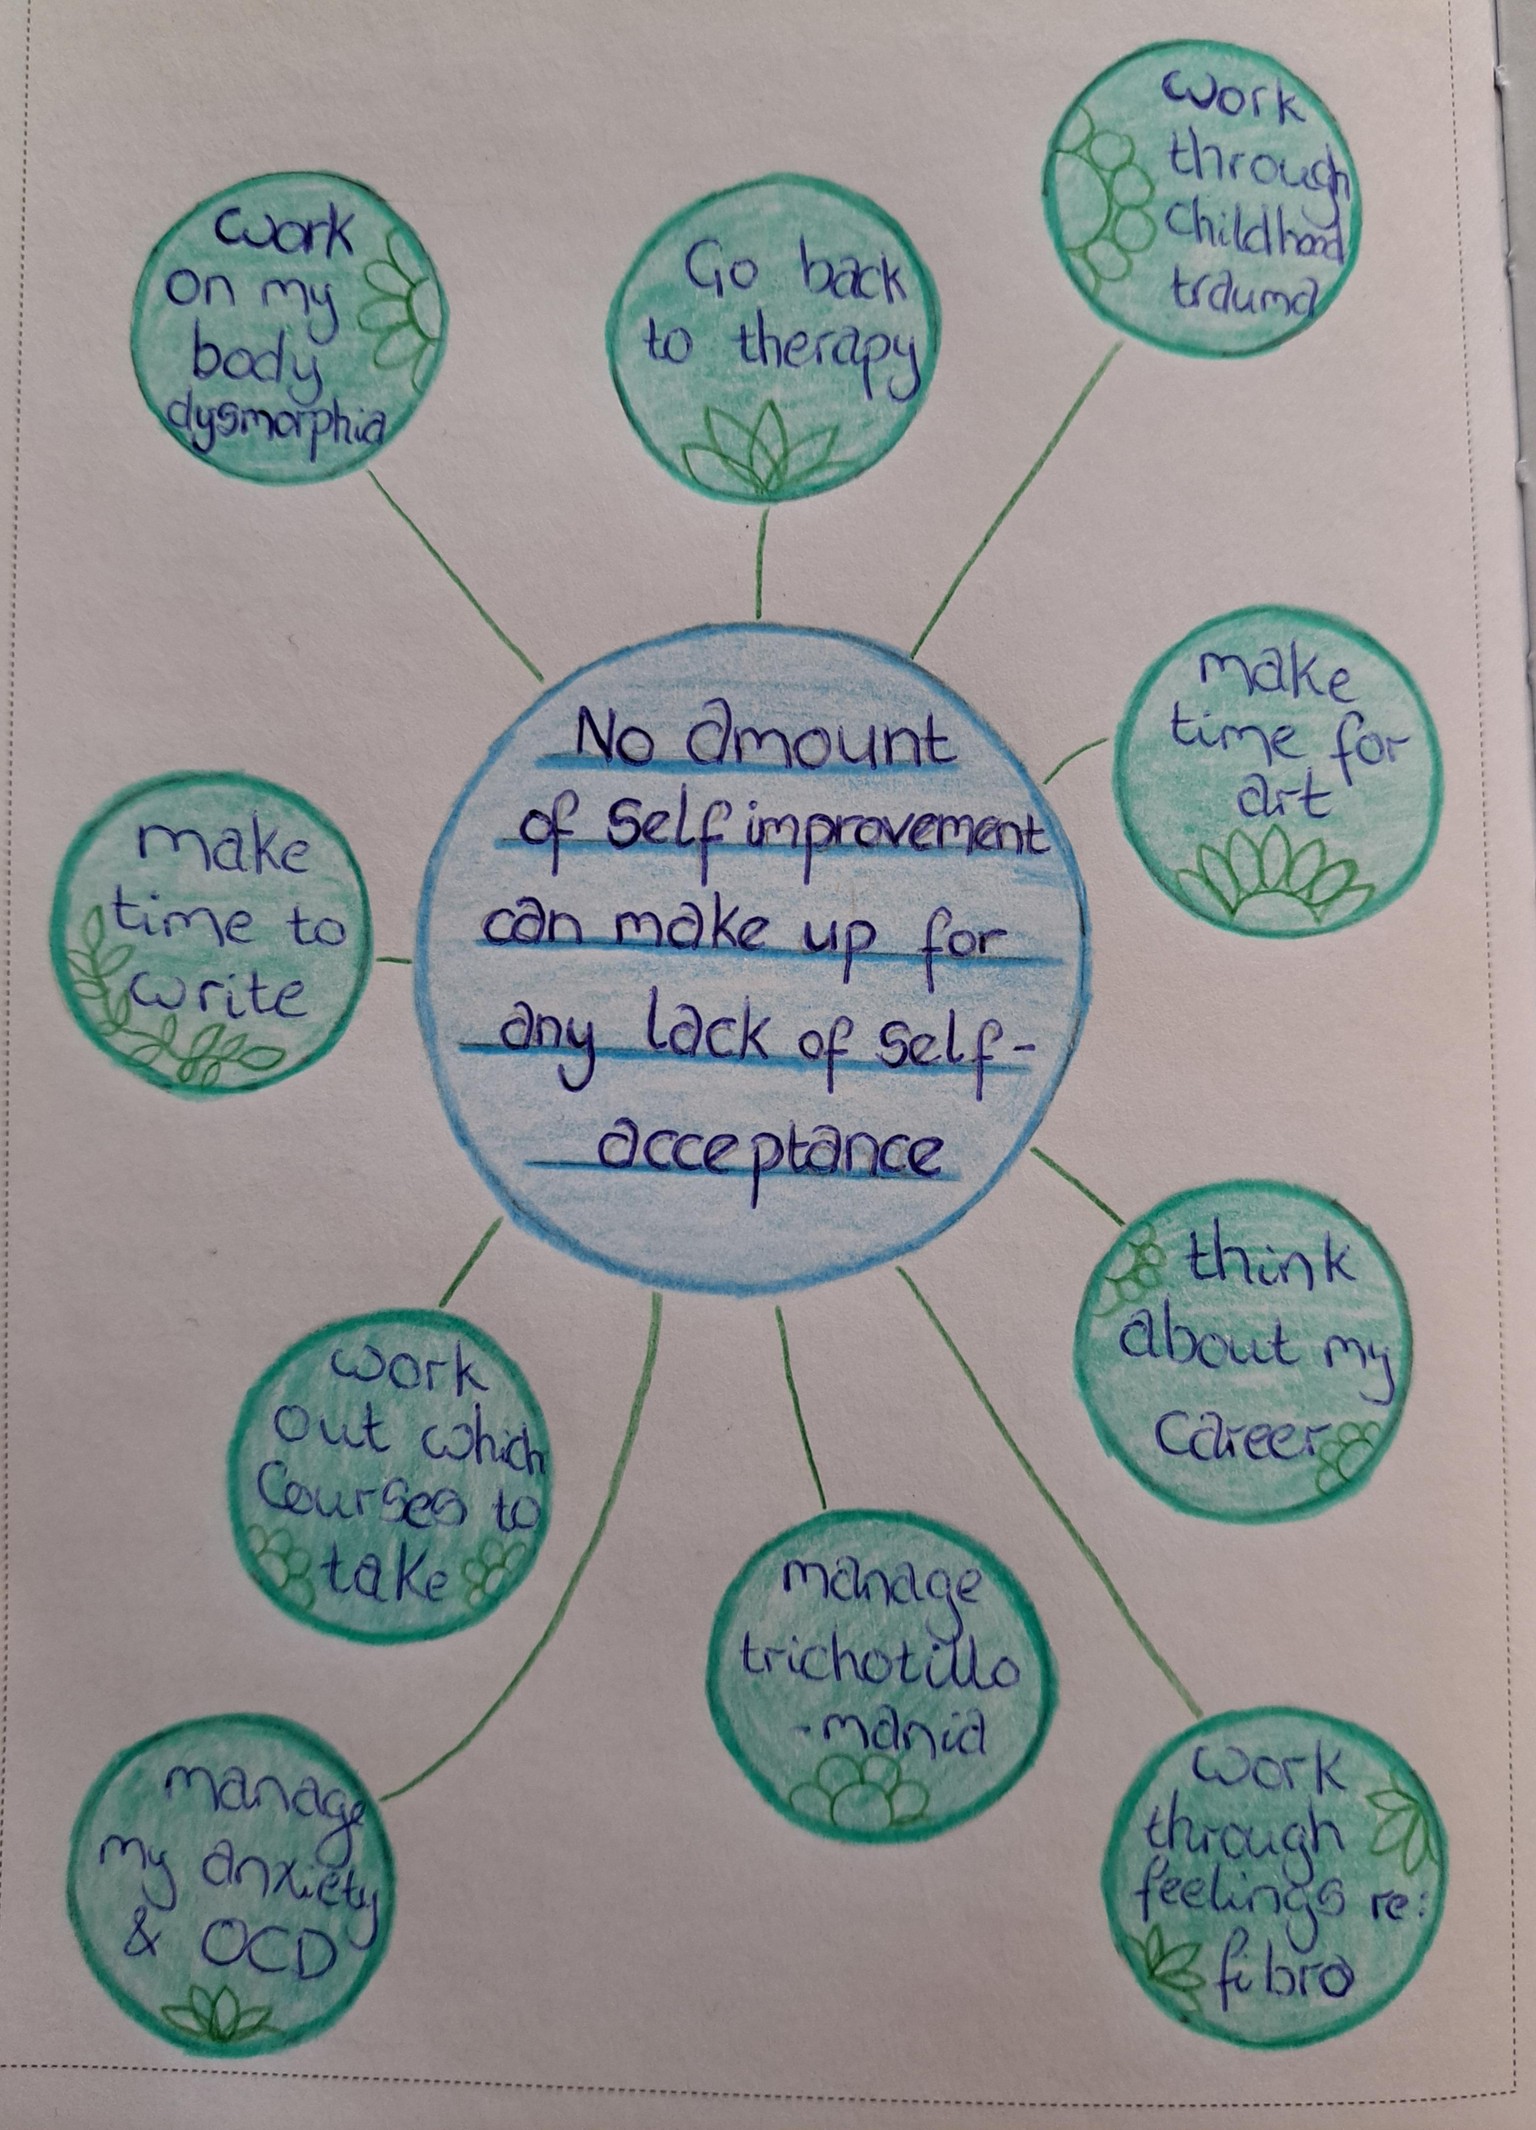 work
on my
body
dysmorphia
Go back
to therapy
work
through
childhood
trauma
make
time for
art
make
time to
write
No amount
of self improvement
can make up for
any lack of self-
acceptance
think
about my
career
work
out which
courses to
take
manage
trichotillo
-mania
manage
my anxiety
& OCD
work
through
feelings re:
fibro